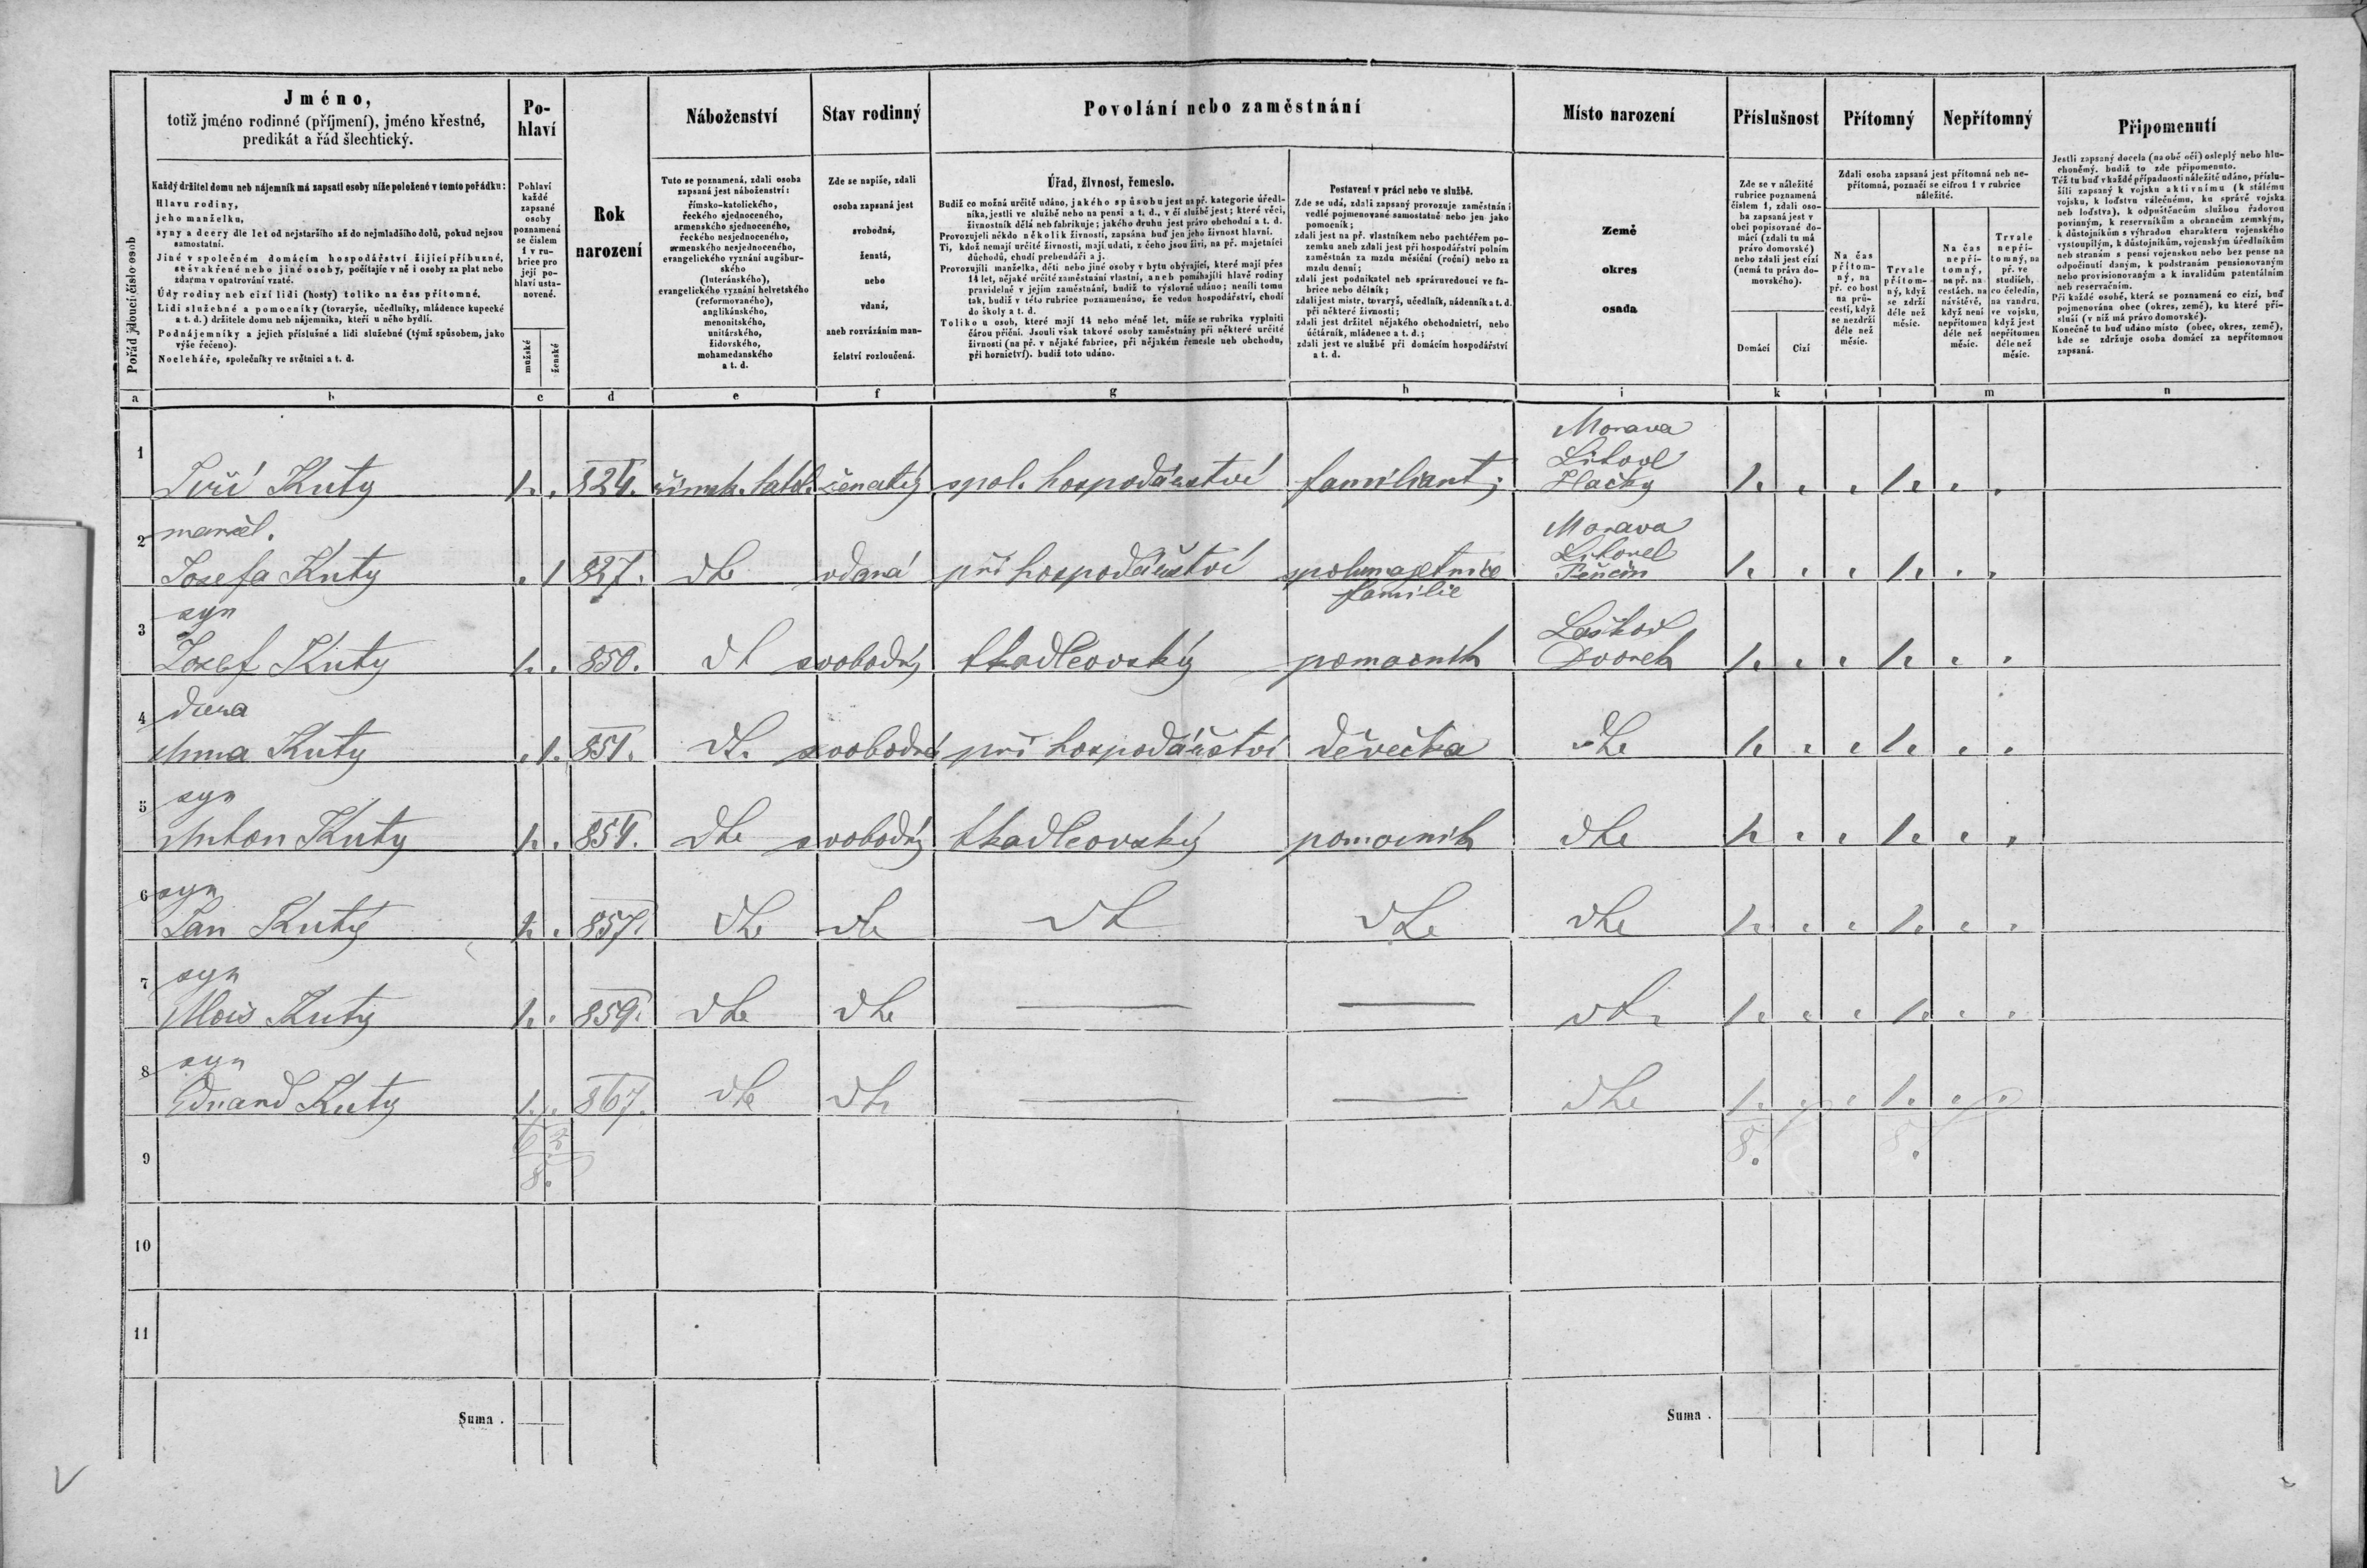 Pořád jdoucí číslo osob
Jméno,
totiž jméno rodinné (příjmení), jméno křestné,
predikát a řád šlechtický.
Každý držitel domu neb nájemník má zapsati osoby níže položené v tomto pořádku:
Hlavu rodiny,
jeho manželku,
syny a dcery dle let od nejstaršího až do nejmladšího dolů, pokud nejsou
samostatní.
Jiné v společném domácím hospodářství žijící příbuzné,
sešvakřené nebo jiné osoby, počítajíc v ně i osoby za plat nebo
zdarma v opatrování vzaté.
Údy rodiny neb cizí lidi (hosty) toliko na čas přítomné.
Lidi služebné a pomocníky (tovaryše, učedlníky, mládence kupecké
a t. d.) držitele domu neb nájemníka, kteří u něho bydlí.
Podnájemníky a jejich příslušné a lidi služebné (týmž spůsobem, jako
výše řečeno).
Nocleháře, společníky ve světnici a t. d.
Po-
hlaví
Pohlaví
každé
zapsané
osoby
poznamená
se číslem
1 v ru-
brice pro
její po-
hlaví usta-
novené.
mužské
ženské
Rok
narození
Náboženství
Tuto se poznamená, zdali osoba
zapsaná jest náboženství:
římsko-katolického,
řeckého sjednoceného,
armenského sjednoceného,
řeckého nesjednoceného,
armenského nesjednoceného,
evangelického vyznání augšbur-
ského
(luteránského),
evangelického vyznání helvetského
(reformovaného),
anglikánského,
menonitského,
unitárského,
židovského,
mohamedanského
a t. d.
Stav rodinný
Zde se napíše, zdali
osoba zapsaná jest
svobodná,
ženatá,
nebo
vdaná,
aneb rozvázáním man-
želství rozloučená.
Povolání nebo zaměstnání
Úřad, živnost, řemeslo.
Budiž co možná určitě udáno, jakého spůsobu jest na př. kategorie úředl-
níka, jestli ve službě nebo na pensi a t. d., v čí službě jest; které věci,
živnostník dělá neb fabrikuje; jakého druhu jest právo obchodní a t. d.
Provozujeli někdo několik živností, zapsána buď jen jeho živnost hlavní.
Ti, kdož nemají určité živnosti, mají udati, z čeho jsou živi, na př. majetníci
důchodů, chudí prebendáři a j.
Provozujíli manželka, děti nebo jiné osoby v bytu obývající, které mají přes
14 let, nějaké určité zaměstnání vlastní, aneb pomáhajíli hlavě rodiny
pravidelně v jejím zaměstnání, budiž to výslovně udáno; neníli tomu
tak, budiž v této rubrice poznamenáno, že vedou hospodářství, chodí
do školy a t. d.
Toliko u osob, které mají 14 nebo méně let, může se rubrika vyplniti
čárou příční. Jsouli však takové osoby zaměstnány při některé určité
živnosti (na př. v nějaké fabrice, při nějakém řemesle neb obchodu,
při hornictví). budiž toto udáno.
Postavení v práci nebo ve službě.
Zde se udá, zdali zapsaný provozuje zaměstnání
vedlé pojmenované samostatně nebo jen jako
pomocník;
zdali jest na př. vlastníkem nebo pachtéřem po-
zemku aneb zdali jest při hospodářství polním
zaměstnán za mzdu měsíční (roční) nebo za
mzdu denní;
zdali jest podnikatel neb správuvedoucí ve fa-
brice nebo dělník;
zdali jest mistr, tovaryš, učedlník, nádenník a t. d.
při některé živnosti;
zdali jest držitel nějakého obchodnictví, nebo
účtárník, mládenec a t. d.;
zdali jest ve službě při domácím hospodářství
a t. d.
Místo narození
Země
okres
osada
Příslušnost
Zde se v náležité
rubrice poznamená
číslem 1, zdali oso-
ba zapsaná jest v
obci popisované do-
mácí (zdali tu má
právo domovské)
nebo zdali jest cizí
(nemá tu práva do-
movského).
Domácí
Cizí
Přítomný
Nepřítomný
Zdali osoba zapsaná jest přítomná neb ne-
přítomná, poznačí se cifrou 1 v rubrice
náležité.
Na čas
přítom-
ný, na
př. co host
na prů-
cestí, když
se nezdrží
déle než
měsíc.
Trvale
přítom-
ný, když
se zdrží
déle než
měsíc.
Na čas
nepří-
tomný,
na př. na
cestách, na
návštěvě,
když není
nepřítomen
déle než
měsíc.
Trvale
nepří-
tomný, na
př. ve
studiích,
co čeledín,
na vandru,
ve vojsku,
když jest
nepřítomen
déle než
měsíc.
Připomenutí
Jestli zapsaný docela (na obě oči) osleplý nebo hlu-
choněmý. budiž to zde připomenuto.
Též tu buď v každé případnosti náležitě udáno, příslu-
šíli zapsaný k vojsku aktivnímu (k stálému
vojsku, k loďstvu válečnému, ku správě vojska
neb loďstva), k odpuštěncům službou řadovou
povinným, k reservníkům a obrancům zemským,
k důstojníkům s výhradou charakteru vojenského
vystoupilým, k důstojníkům, vojenským úředlníkům
neb stranám s pensí vojenskou nebo bez pense na
odpočinutí daným, k podstranám pensionovaným
nebo provisionovaným a k invalidům patentálním
neb reservačním.
Při každé osobě, která se poznamená co cizí, buď
pojmenována obec (okres, země), ku které pří-
sluší (v níž má právo domovské).
Konečně tu buď udáno místo (obec, okres, země),
kde se zdržuje osoba domácí za nepřítomnou
zapsaná.
a b c d e f g h i k l m n
1
Morava
Litovl
Jiří Kutý 1. . 824. římsk. katol. ženatý spol. hospodářství familiant; Hačky 1. . . 1. . .
2 manžel. Morava
Litovel
Josefa Kutý . 1 827. dto vdaná při hospodářství spolumajetnice Pěnčín 1. . . 1. . .
familie
3 syn Laškov
Josef Kutý 1. . 850. dt svobodný tkadlcovský pomocník Dvorek 1. . . 1. . .
4 dcera
Anna Kutý . 1. 851. dt. svobodná při hospodářství děvečka dto 1. . . 1. . .
5 syn
Anton Kutý 1. . 854. dto svobodný tkadlcovský pomocník dto 1. . . 1. . .
6 syn
Jan Kutý 1. . 857. dto dto dt dto dto 1. . . 1. . .
7 syn
Alois Kutý 1. . 859. dto dto — — dto 1. . . 1. . .
8 syn
Eduard Kutý 1. . 867. dto dto — — dto 1. . . 1. . .
9 6 2 8. 8.
8.
10
11
Suma . Suma .